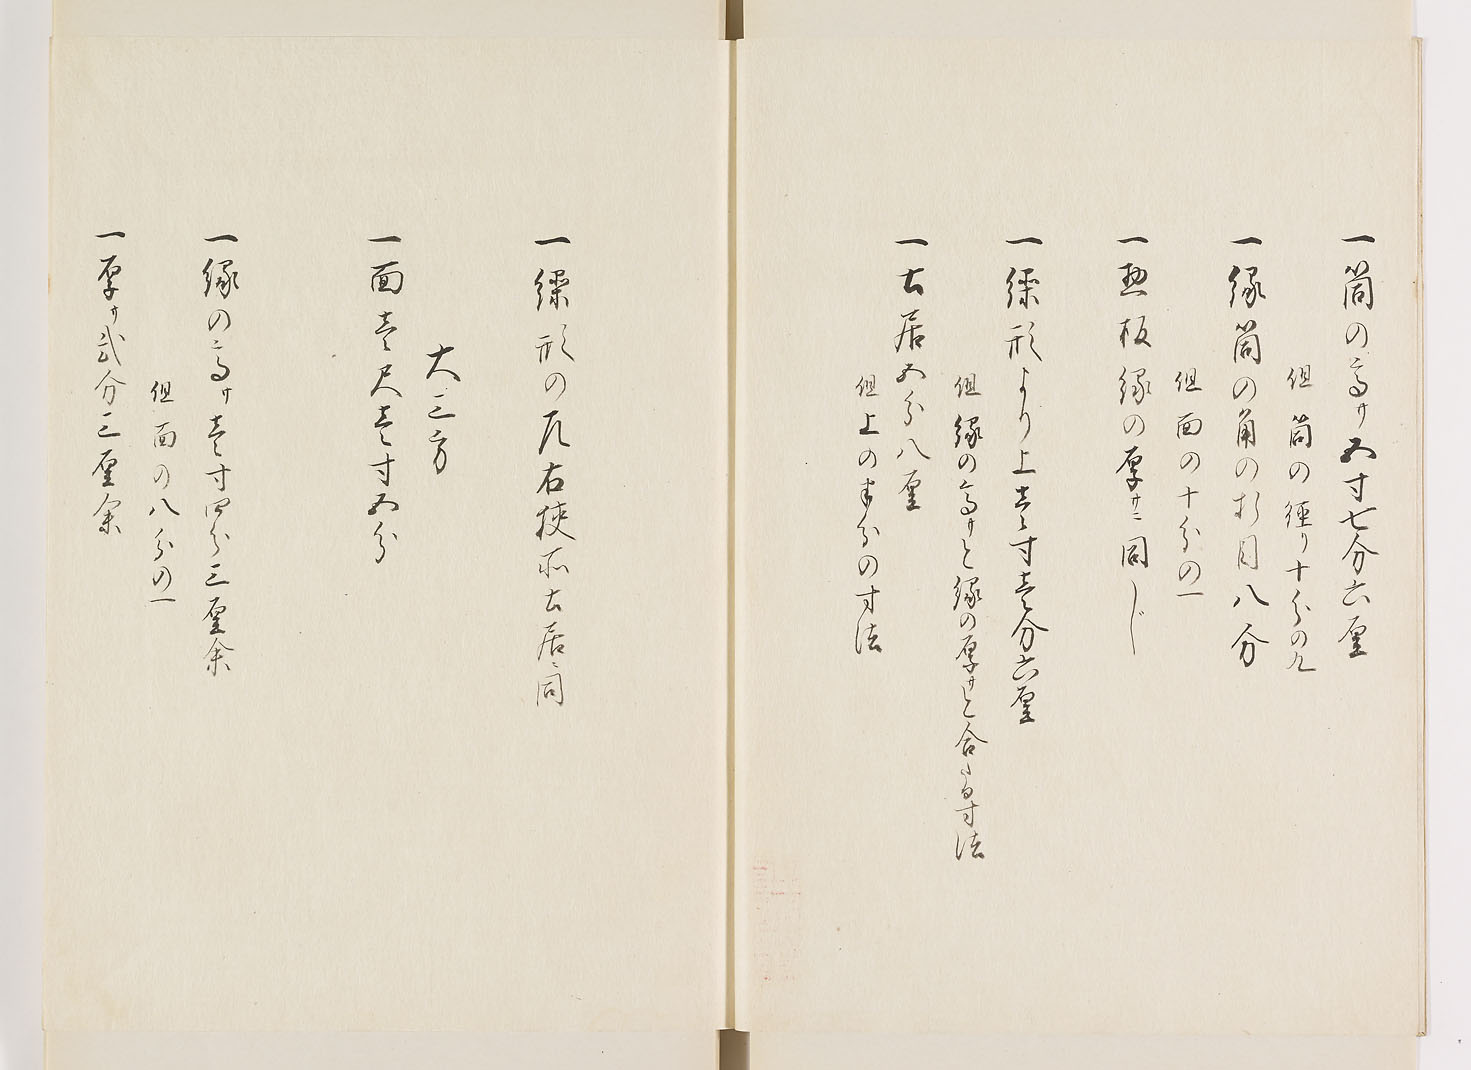 一筒の高サ五寸七分六厘
但筒の径り十分の九
一縁筒の角の折目八分
但面の十分の一
一惣板縁の厚サニ同し
一繰形より上壱寸壱分六厘
但縁の高サと縁の厚サと合たる寸法
一土居五分八厘
但上の半分の寸法
一繰形の左右狭所土居ニ同
大三方
一面壱尺壱寸五分
一縁の高サ壱寸四分三厘余
但面の八分の一
一厚サ弐分三厘余